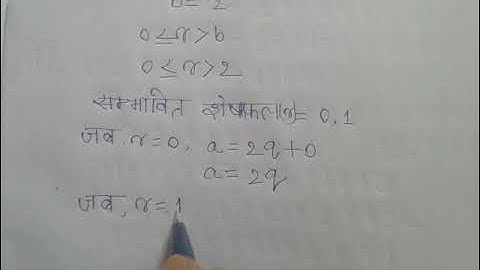 b = 2
0 ≤ r > b
0 ≤ r > 2
सम्भावित शेषफल = 0, 1
जब, r = 0, a = 2q + 0
a = 2q
जब, r = 1